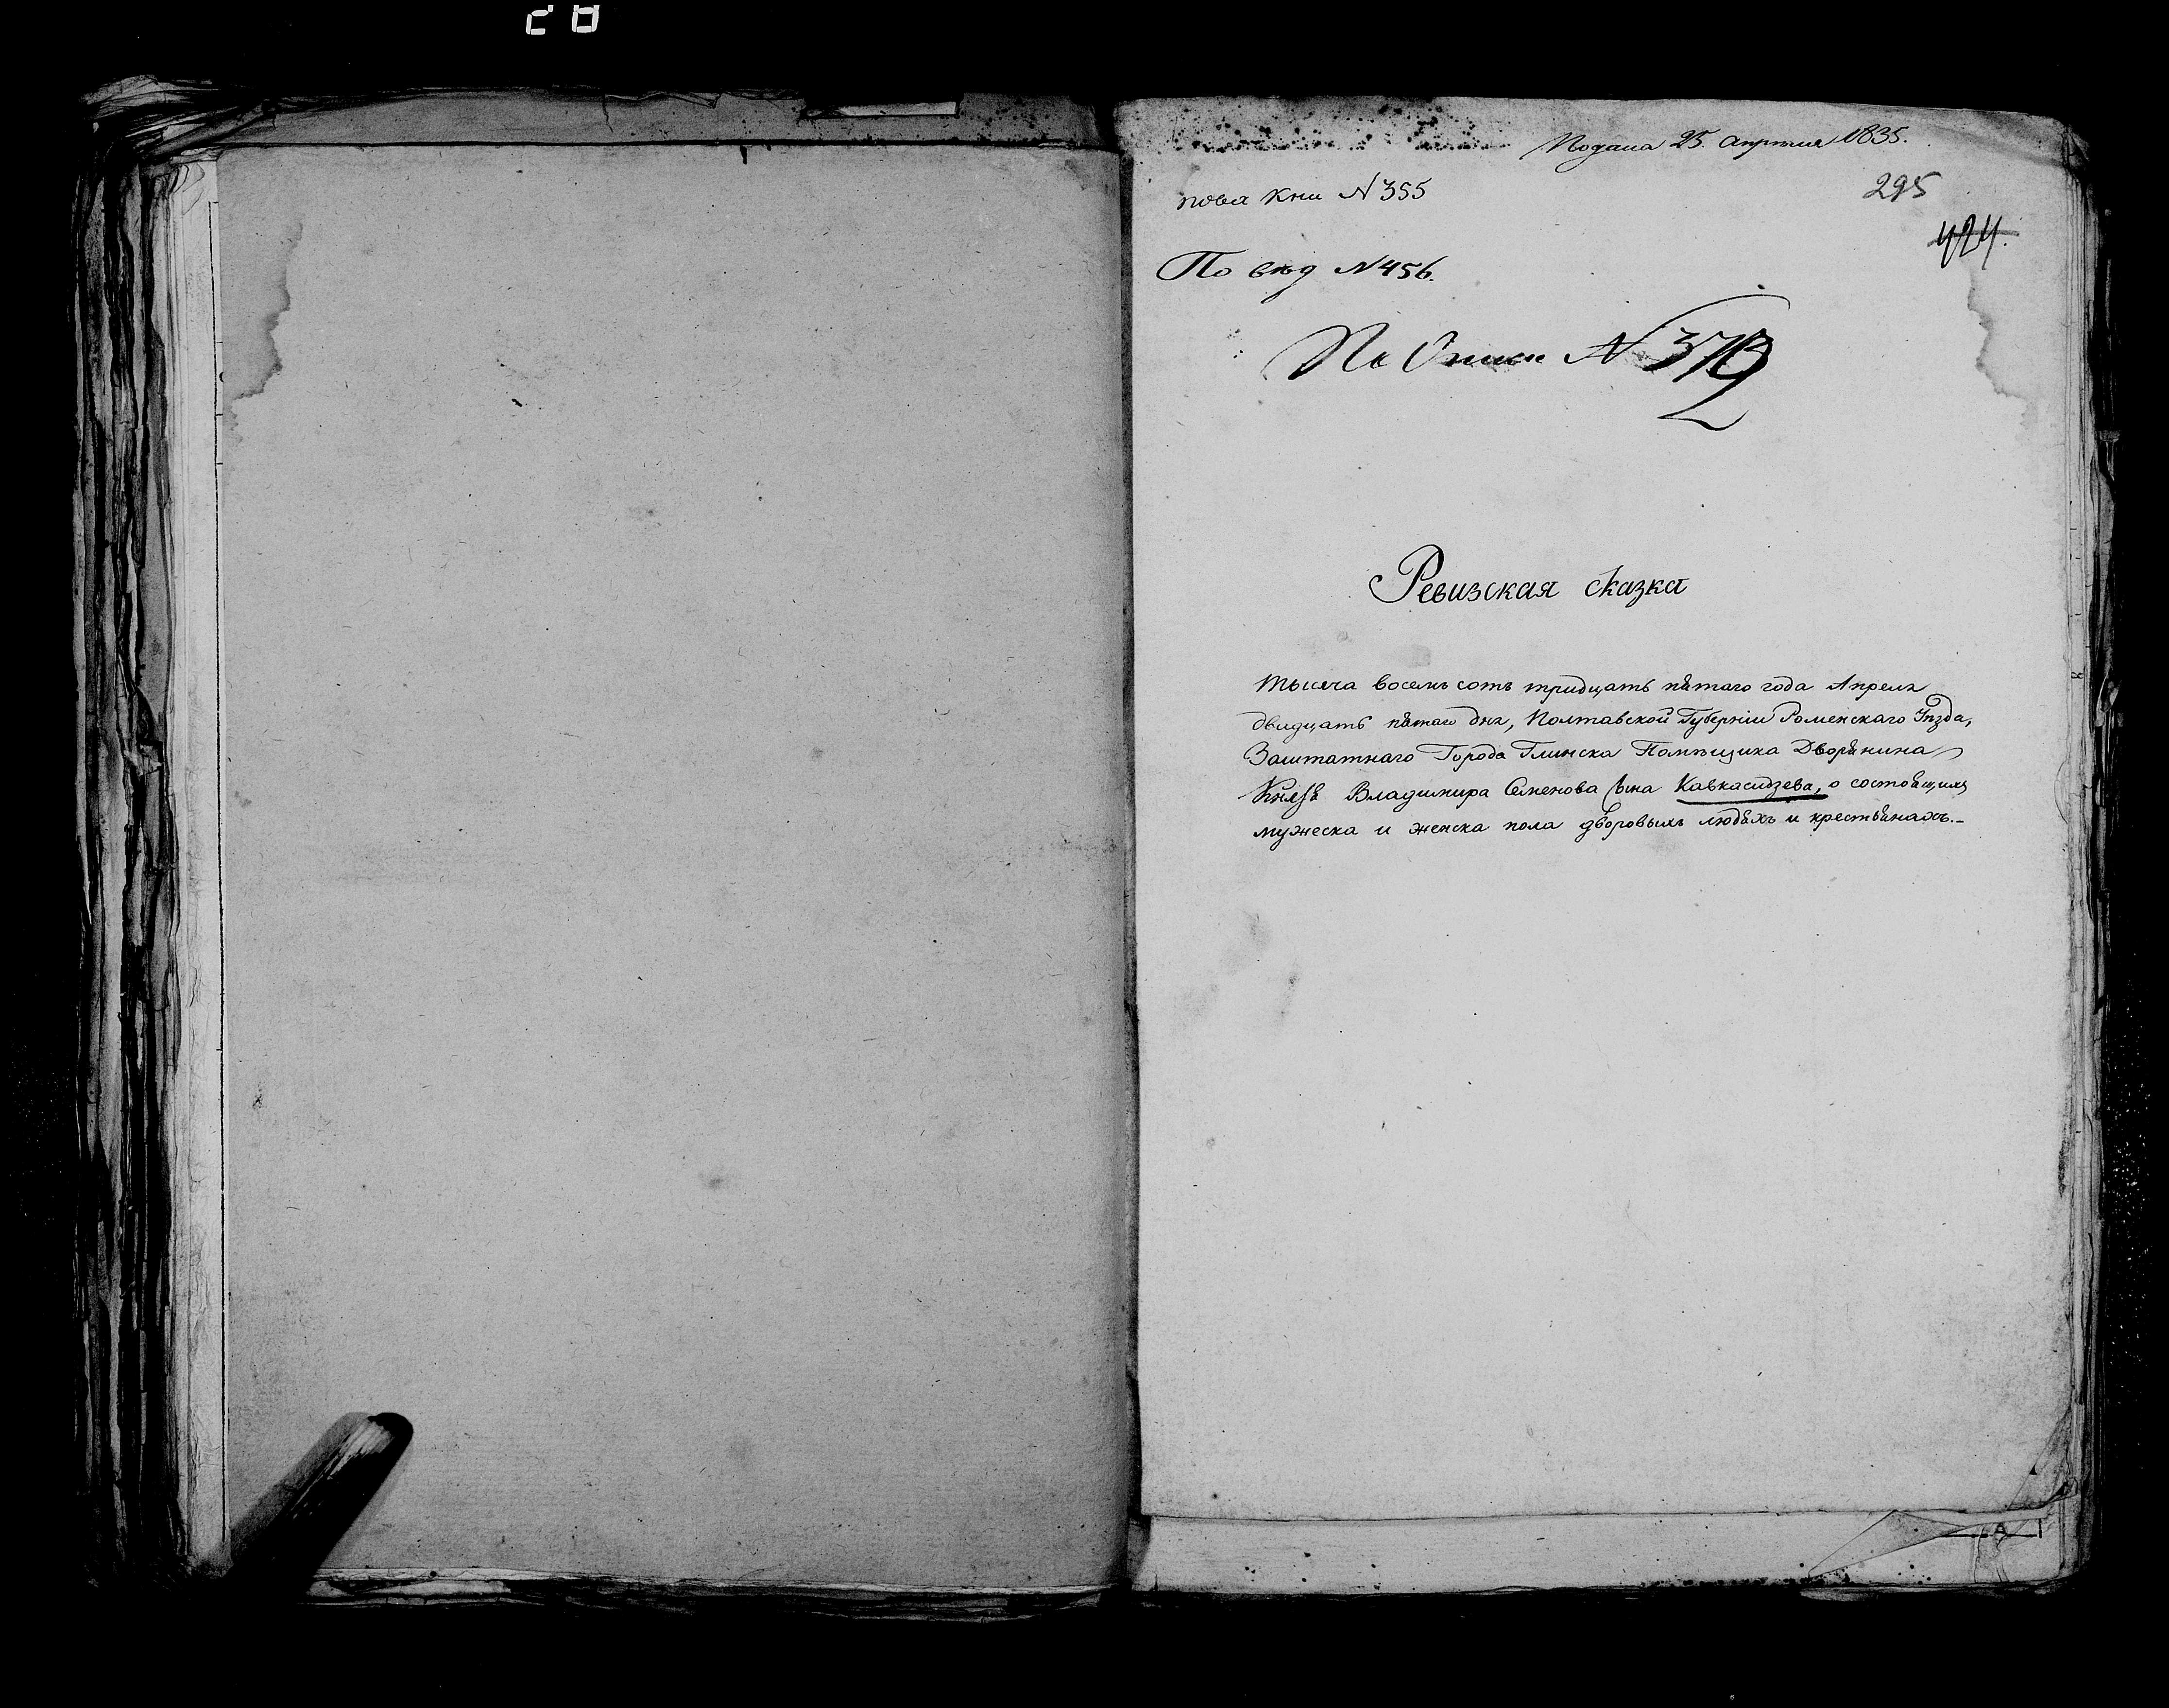 28
Подана 25. апреля 1835.
295
нова Кни N 355
424.
По вед N 456.
По Описи N
Ревизская сказка
тысяча восемь сотъ тридцать пятаго года Апреля
двадцать пятаго дня, Полтавской Губерніи Роменскаго Уѣзда,
Заштатнаго Города Глинска Помѣщика Дворянина
Князя Владимира Семенова сына Кавкасидзева, о состоящихъ
мужеска и женска пола дворовыхъ людяхъ и крестьянахъ.-